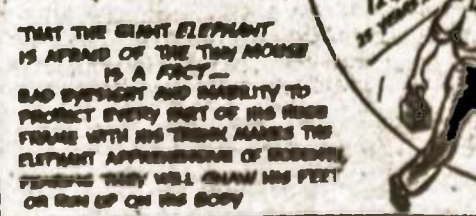 THAT THE GIANT ELEPHANT
IS AFRAID OF THE TINY MOUSE
IS A FACT—
BAD EYESIGHT AND INABILITY TO
PROTECT EVERY PART OF HIS HUGE
FRAME WITH HIS TRUNK MAKES THE
ELEPHANT APPREHENSIVE OF RODENTS,
FEARING THEY WILL GNAW HIS FEET
OR RUN UP ON HIS BODY
25 YEARS